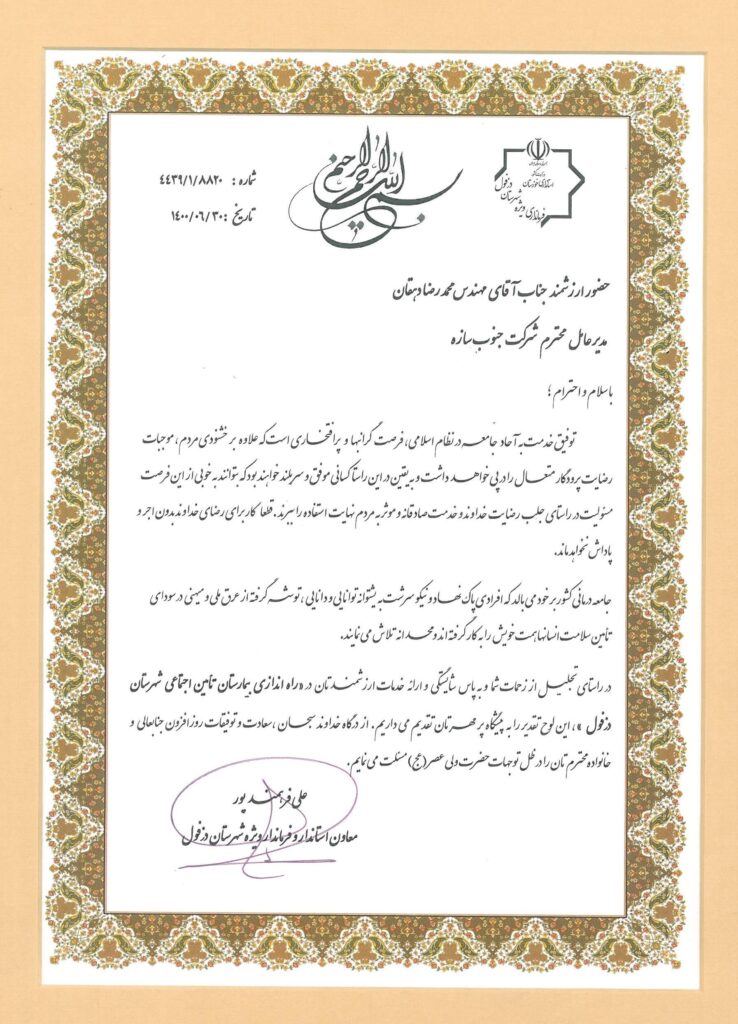 بسم الله الرحمن الرحیم
جمهوری اسلامی ایران
وزارت کشور
استانداری خوزستان
فرمانداری ویژه شهرستان دزفول
شماره : ۴۴۳۹/۱/۸۸۲۰
تاریخ : ۱۴۰۰/۰۶/۳۰
حضور ارزشمند جناب آقای مهندس محمدرضا دهقان
مدیرعامل محترم شرکت جنوب سازه
باسلام و احترام ؛
توفیق خدمت به آحاد جامعه در نظام اسلامی، فرصت گرانبها و پرافتخاری است که علاوه بر خشنودی مردم ، موجبات
رضایت پرودگار متعال را در پی خواهد داشت و به یقین در این راستا کسانی موفق و سربلند خواهند بود که بتوانند به خوبی از این فرصت
مسئولیت در راستای جلب رضایت خداوند و خدمت صادقانه و موثر به مردم نهایت استفاده را ببرند . قطعا کار برای رضای خداوند بدون اجر و
پاداش نخواهد ماند.
جامعه درمانی کشور بر خود می بالد که افرادی پاک نهاد و نیکو سرشت به پشتوانه توانایی و دانایی ، توشه گرفته از عرق ملی و میهنی در سودای
تأمین سلامت انسانها همت خویش را به کار گرفته اند و مجدانه تلاش می نمایند.
در راستای تجلیل از زحمات شما و به پاس شایستگی و ارائه خدمات ارزشمندتان در «راه اندازی بیمارستان تامین اجتماعی شهرستان
دزفول »، این لوح تقدیر را به پیشگاه پر مهرتان تقدیم می داریم . از درگاه خداوند سبحان ، سعادت و توفیقات روز افزون جنابعالی و
خانواده محترم تان را در ظل توجهات حضرت ولی عصر (عج) مسئلت می نمایم.
علی فرهمندپور
معاون استاندار و فرماندار ویژه شهرستان دزفول